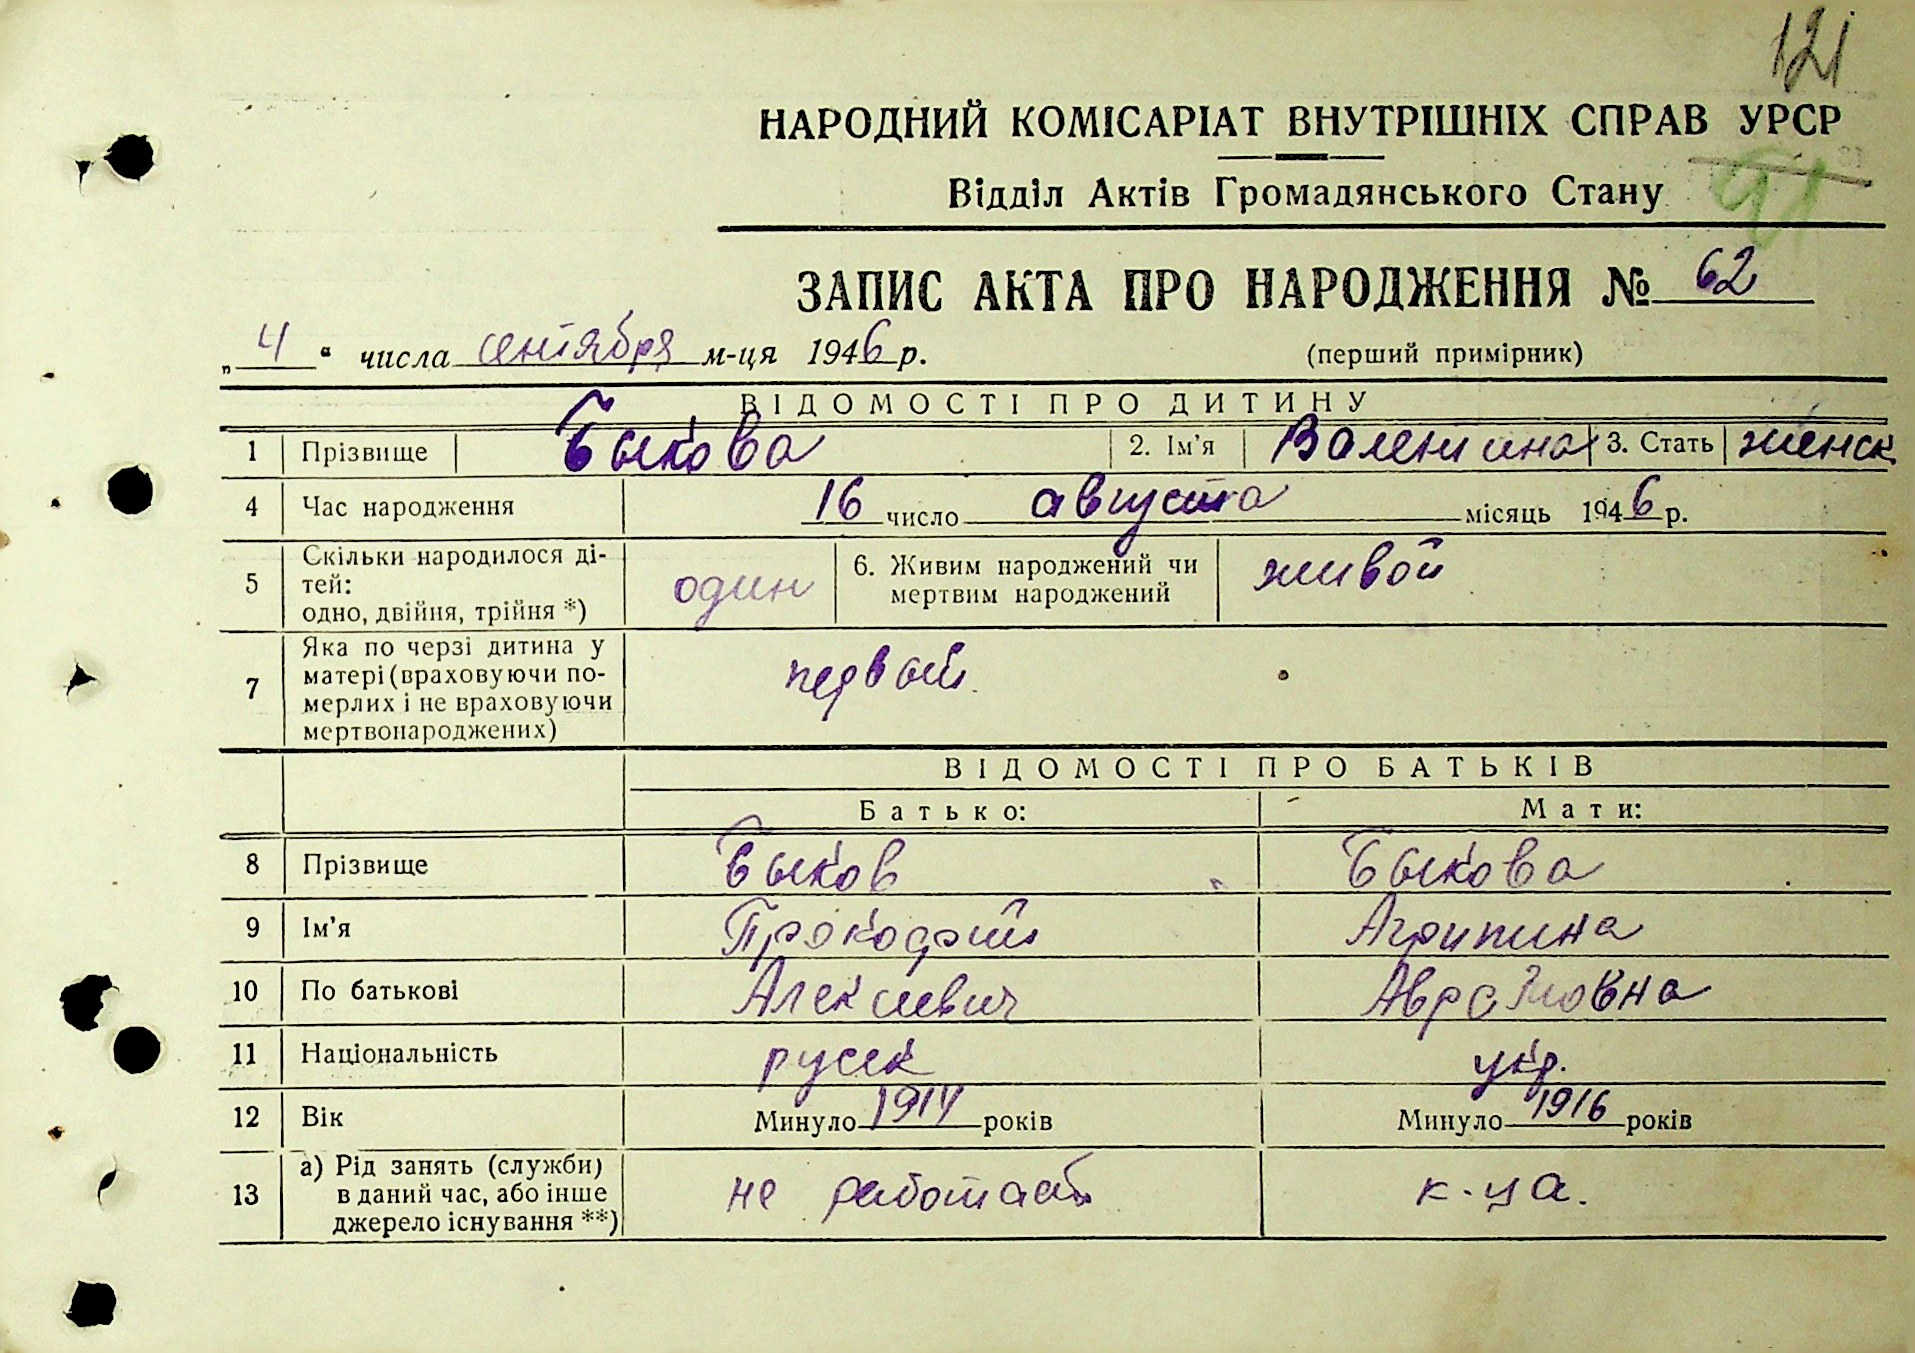 121
НАРОДНИЙ КОМІСАРІАТ ВНУТРІШНІХ СПРАВ УРСР
Відділ Актів Громадянського Стану
91
ЗАПИС АКТА ПРО НАРОДЖЕННЯ № 62
„ 4 “ числа сентября м-ця 1946 р. (перший примірник)
ВІДОМОСТІ ПРО ДИТИНУ
1 Прізвище Быкова 2. Ім'я Валентина 3. Стать женск
4 Час народження 16 число августа місяць 1946 р.
5 Скільки народилося ді-
тей:
одно, двійня, трійня *) один 6. Живим народжений чи
мертвим народжений живой
7 Яка по черзі дитина у
матері (враховуючи по-
мерлих і не враховуючи
мертвонароджених) первый
ВІДОМОСТІ ПРО БАТЬКІВ
Батько: Мати:
8 Прізвище Быков Быкова
9 Ім'я Прокофий Агрипина
10 По батькові Алексиевич Аврамовна
11 Національність русск укр.
12 Вік Минуло 1914 років Минуло 1916 років
13 а) Рід занять (служби)
в даний час, або інше
джерело існування **) не работает к-ца.